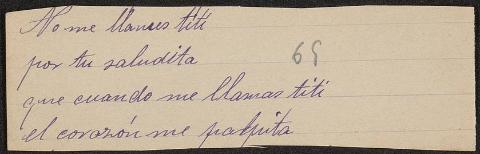 No me llames titi
por tu saludita
65
que cuando me llamas titi
el corazón me palpita